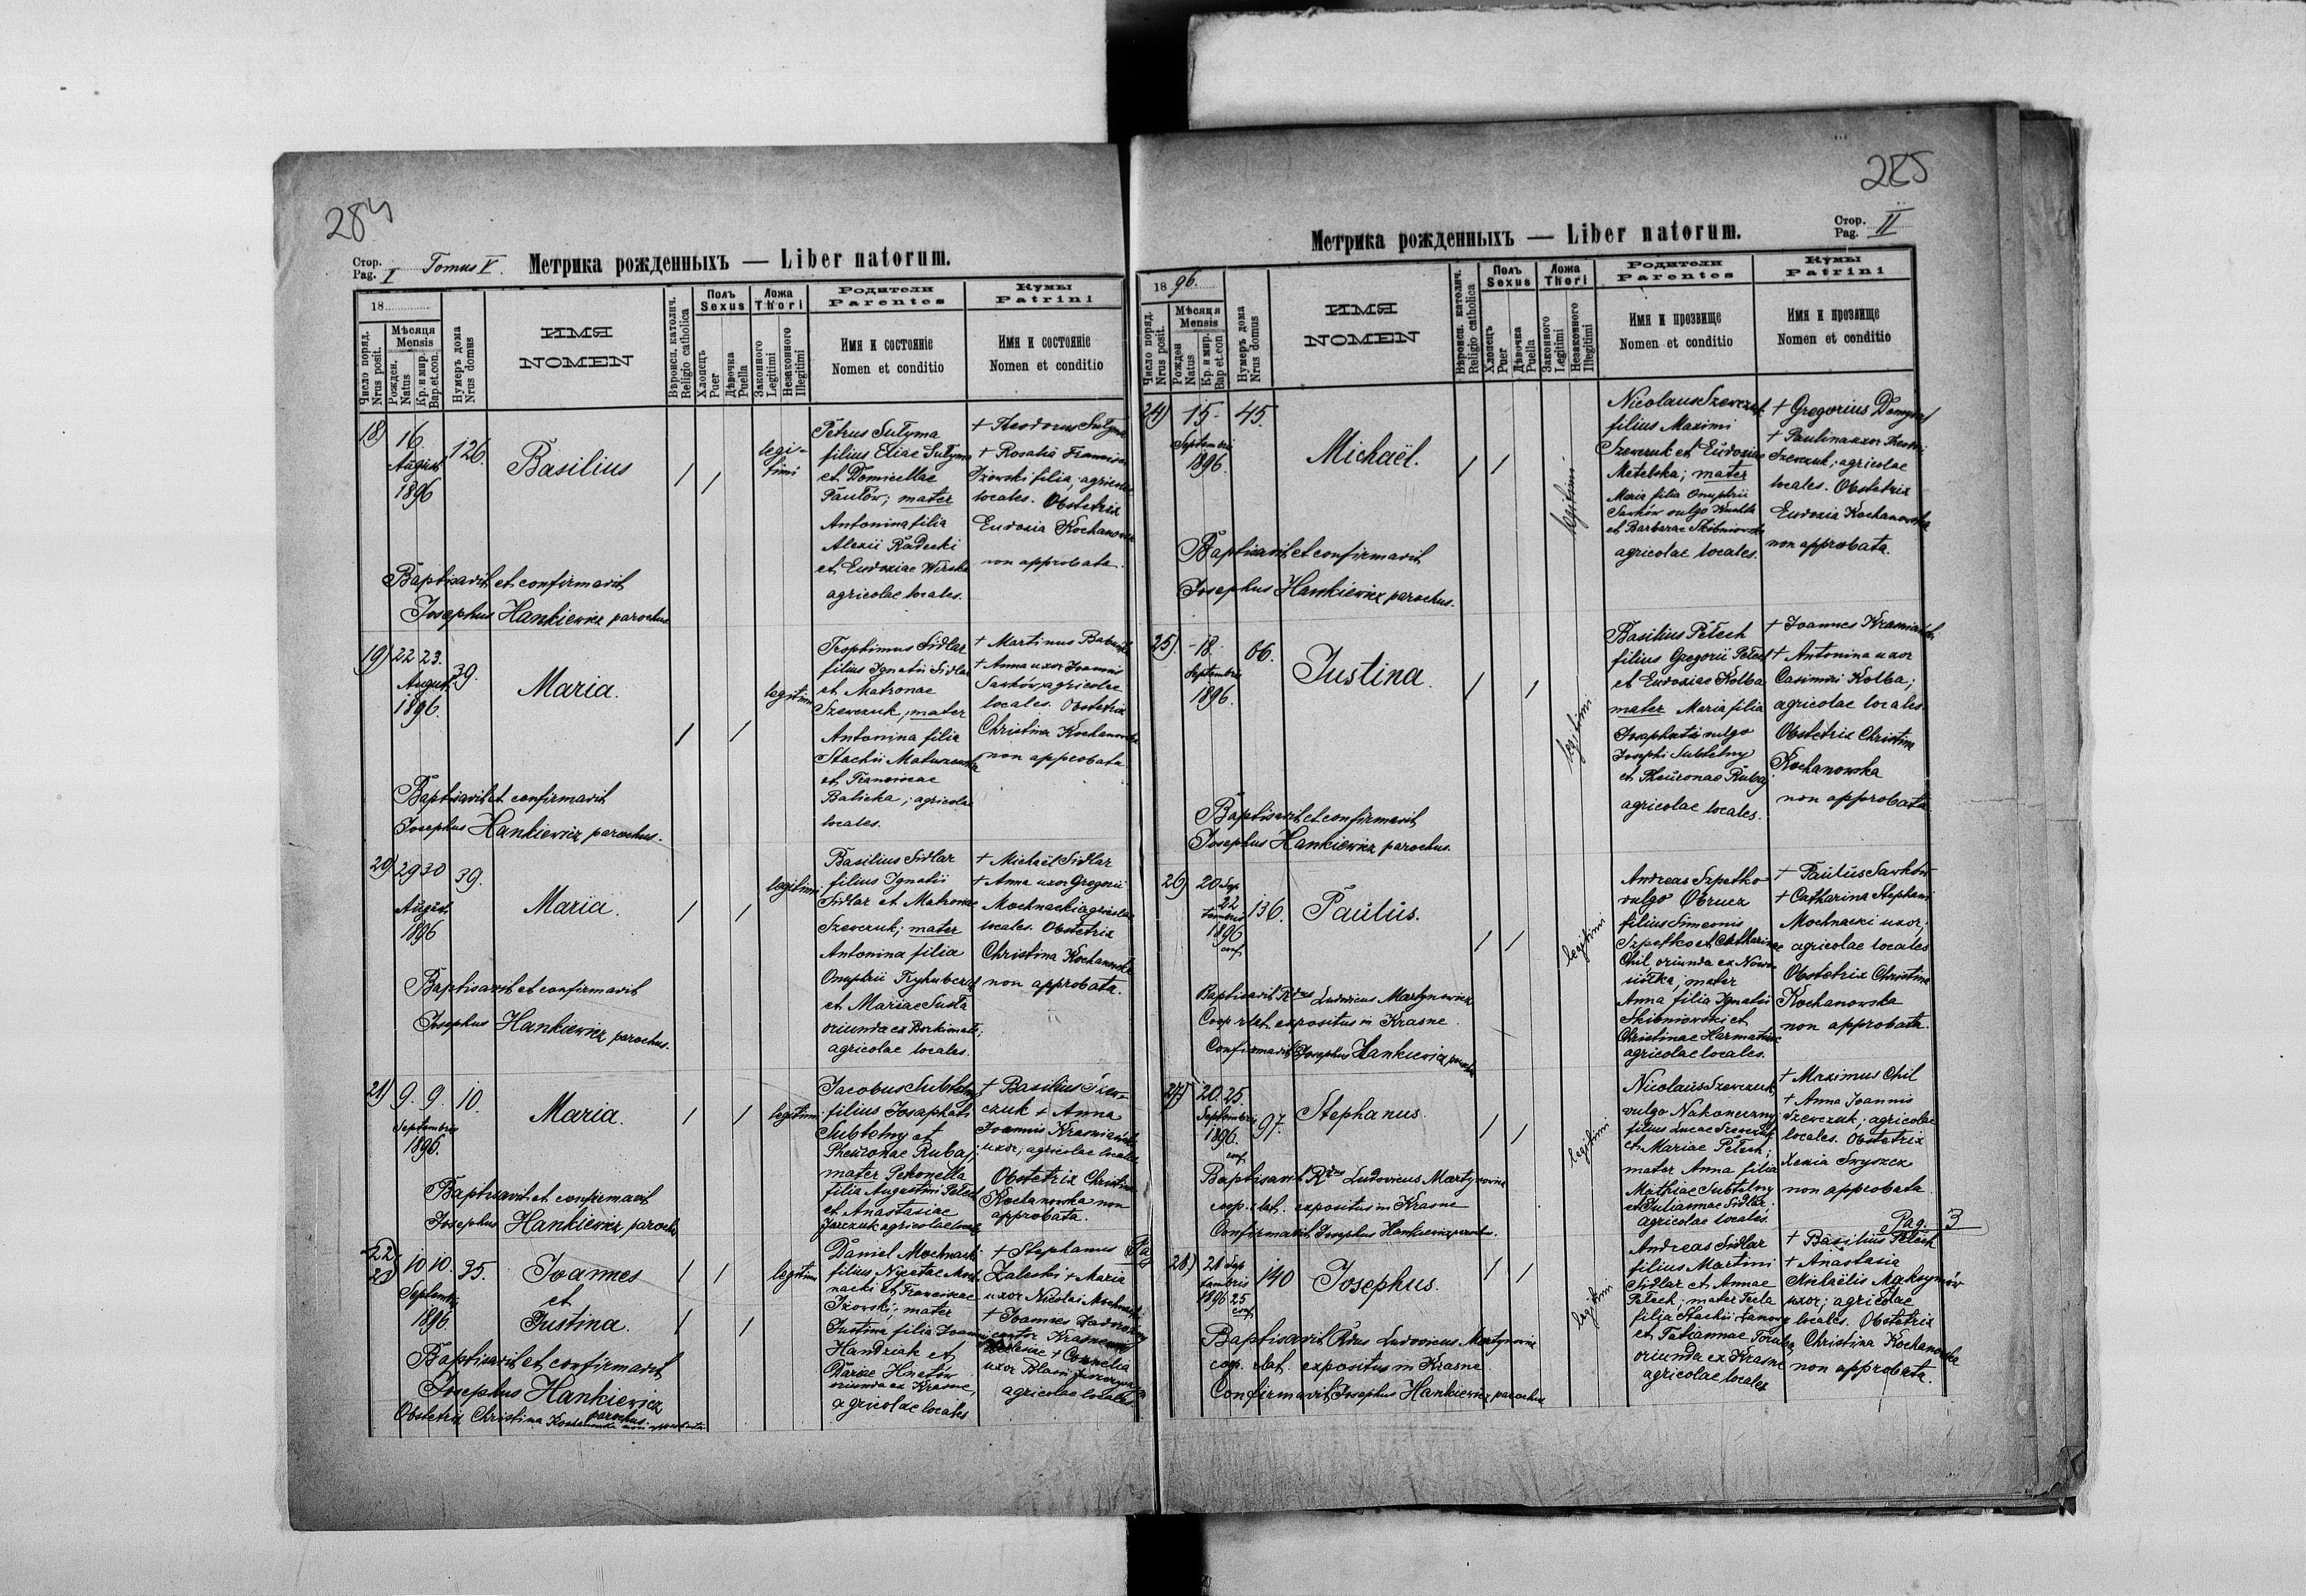 284
Стор.
Pag. I
Tomus V.
Метрика рожденныхъ — Liber natorum.
18
Число поряд.
Nrus posit.
Мѣсяця
Mensis
Рожден.
Natus
Кр. и мир.
Bap. et con.
Нумеръ дома
Nrus domus
ИМЯ
NOMEN
Вѣроисп. католич.
Religio catholica
Полъ
Sexus
Хлопецъ
Puer
Дѣвочка
Puella
Ложа
Thori
Законного
Legitimi
Незаконного
Illegitimi
Родители
Parentes
Имя и состояніе
Nomen et conditio
Кумы
Patrini
Имя и состояніе
Nomen et conditio
18)
16
August
1896
126.
Basilius
legi-
timi
Petrus Sułyma
filius Eliae Sułyma
et Domicellae
Pautów; mater
Antonina filia
Alexii Radecki
et Eudoxiae Wirska
agricolae locales.
+ Theodorus Sułyma
+ Rosalia Francisci
Izowski filia; agricolae
locales. Obstetrix
Eudoxia Kochanowska
non approbata.
Baptisavit et confirmavit
Josephus Hankiewicz parochus
19)
22 23.
August
1896.
39.
Maria.
legitimi
Trophimus Sidlar
filius Ignatii Sidlar
et Matronae
Szewczuk; mater
Antonina filia
Stachii Matuszewska
et Franciscae
Balicka; agricolae
locales.
+ Martinus
+ Anna uxor Joannis
Sawków; agricolae
locales. Obstetrix
Christina Kochanowska
non approbata
Baptisavit et confirmavit
Josephus Hankiewicz parochus.
20)
29 30
August
1896
39.
Maria.
legitimi
Basilius Sidlar
filius Ignatii
Sidlar et Matronae
Szewczuk; mater
Antonina filia
Onuphrii
et Mariae Susła
oriunda ex
agricolae locales.
+ Michaël Sidlar
+ Anna uxor Gregorii
Mochnacki agricolae
locales. Obstetrix
Christina Kochanowska
non approbata.
Baptisavit et confirmavit
Josephus Hankiewicz parochus.
21)
9. 9.
Septembris
1896.
10.
Maria.
legitimi
Jacobus Subtelny
filius Josaphati
Subtelny et
Pheuronae Rubaj;
mater Petronella
filia Augustini Petech
et Anastasiae
Jarczuk agricolae locales
+ Basilius Szew-
czuk + Anna
Joannis Krasniański
uxor; agricolae locales
Obstetrix Christina
Kochanowska non
approbata.
Baptisavit et confirmavit
Josephus Hankiewicz parochus
22)
23)
10 10.
Septembris
1896
35.
Joannes
et
Justina.
legitimi
Daniel Mochnacki
filius Nycetae Moch
nacki et Franciscae
Izowski; mater
Justina filia Joannis
Handziak et
Dariae Hnatów
oriunda ex Krasne,
agricolae locales
+ Stephanus
Zaleski + Maria
uxor Nicolai Mochnacki
+ Joannes Zadorozny
cantor Krasnensis
ecclesiae + Cornelia
uxor Blasii
agricolae locales
Baptisavit et confirmavit
Josephus Hankiewicz
parochus.
Obstetrix Christina Kochanowska non approbata
285
Метрика рожденныхъ — Liber natorum.
Стор.
Pag. II
18 96.
Число поряд.
Nrus posit.
Мѣсяця
Mensis
Рожден
Natus
Кр. и мир.
Bap et con
Нумеръ дома
Nrus domus
ИМЯ
NOMEN
Вѣроисп. католич.
Religio catholica
Полъ
Sexus
Хлопецъ
Puer
Дѣвочка
Puella
Ложа
Thori
Законного
Legitimi
Незаконного
Illegitimi
Родители
Parentes
Имя и прозвище
Nomen et conditio
Кумы
Patrini
Имя и прозвище
Nomen et conditio
24)
15
Septembris
1896.
45.
Michaël.
legitimi
Nicolaus Szewczuk
filius Maximi
Szewczuk et Eudoxiae
Metelska; mater
Maria filia Onuphrii
Sawków vulgo
et Barbarae Skibniowska
agricolae locales.
+ Gregorius
+ Paulina uxor
Szewczuk; agricolae
locales. Obstetrix
Eudoxia Kochanowska
non approbata.
Baptisavit et confirmavit
Josephus Hankiewicz parochus.
25)
18.
Septembris
1896.
66.
Justina.
legitimi
Basilius Petech
filius Gregorii Petech
et Eudoxiae Kolba
mater Maria filia
Josaphati vulgo
Josephi Subtelny
et Pheuronae Rubaj
agricolae locales.
+ Joannes Krasniański
+ Antonina uxor
Casimiri Kolba;
agricolae locales.
Obstetrix Christina
Kochanowska
non approbata
Baptisavit et confirmavit
Josephus Hankiewicz parochus.
26)
20 Sep
22
tembris
1896
conf.
136.
Paulus.
legitimi
Andreas Szpetko
vulgo Obrucz
filius Simeonis
Szpetko et Catharinae
Chil oriunda ex Nowo-
siółka; mater
Anna filia Ignatii
Skibniowski et
Christinae
agricolae locales.
+ Paulus Sawków
+ Catharina Stephani
Mochnacki uxor;
agricolae locales
Obstetrix Christina
Kochanowska
non approbata.
Baptisavit Rdus Ludovicus Martynowicz
Coop. r. lat. expositus in Krasne.
Confirmavit Josephus Hankiewicz parochus
27)
20. 25.
Septembris
1896.
conf.
97.
Stephanus.
legitimi
Nicolaus Szewczuk
vulgo Nakoneczny
filius Lucae Szewczuk
et Mariae Petech;
mater Anna filia
Mathiae Subtelny
et Juliannae Sidlar
agricolae locales.
+ Maximus Chil
+ Anna Joannis
Szewczuk; agricolae
locales. Obstetrix
Xenia Swyszcz
non approbata
Pag. 3
Baptisavit Rdus Ludovicus Martynowicz
coop. r. lat. expositus in Krasne
Confirmavit Josephus Hankiewicz parochus.
28)
21 Sep
tembris
1896 25
conf.
140
Josephus.
legitimi
Andreas Sidlar
filius Martini
Sidlar et Annae
Petech; mater Tecla
filia Stachii
et Tatiannae
oriunda ex Krasne
agricolae locales
+ Basilius Petech
+ Anastasia
Michaëlis Maksymów
uxor; agricolae
locales. Obstetrix
Christina Kochanowska
non approbata.
Baptisavit Rdus Ludovicus Martynowicz
coop. r. lat. expositus in Krasne.
Confirmavit Josephus Hankiewicz parochus